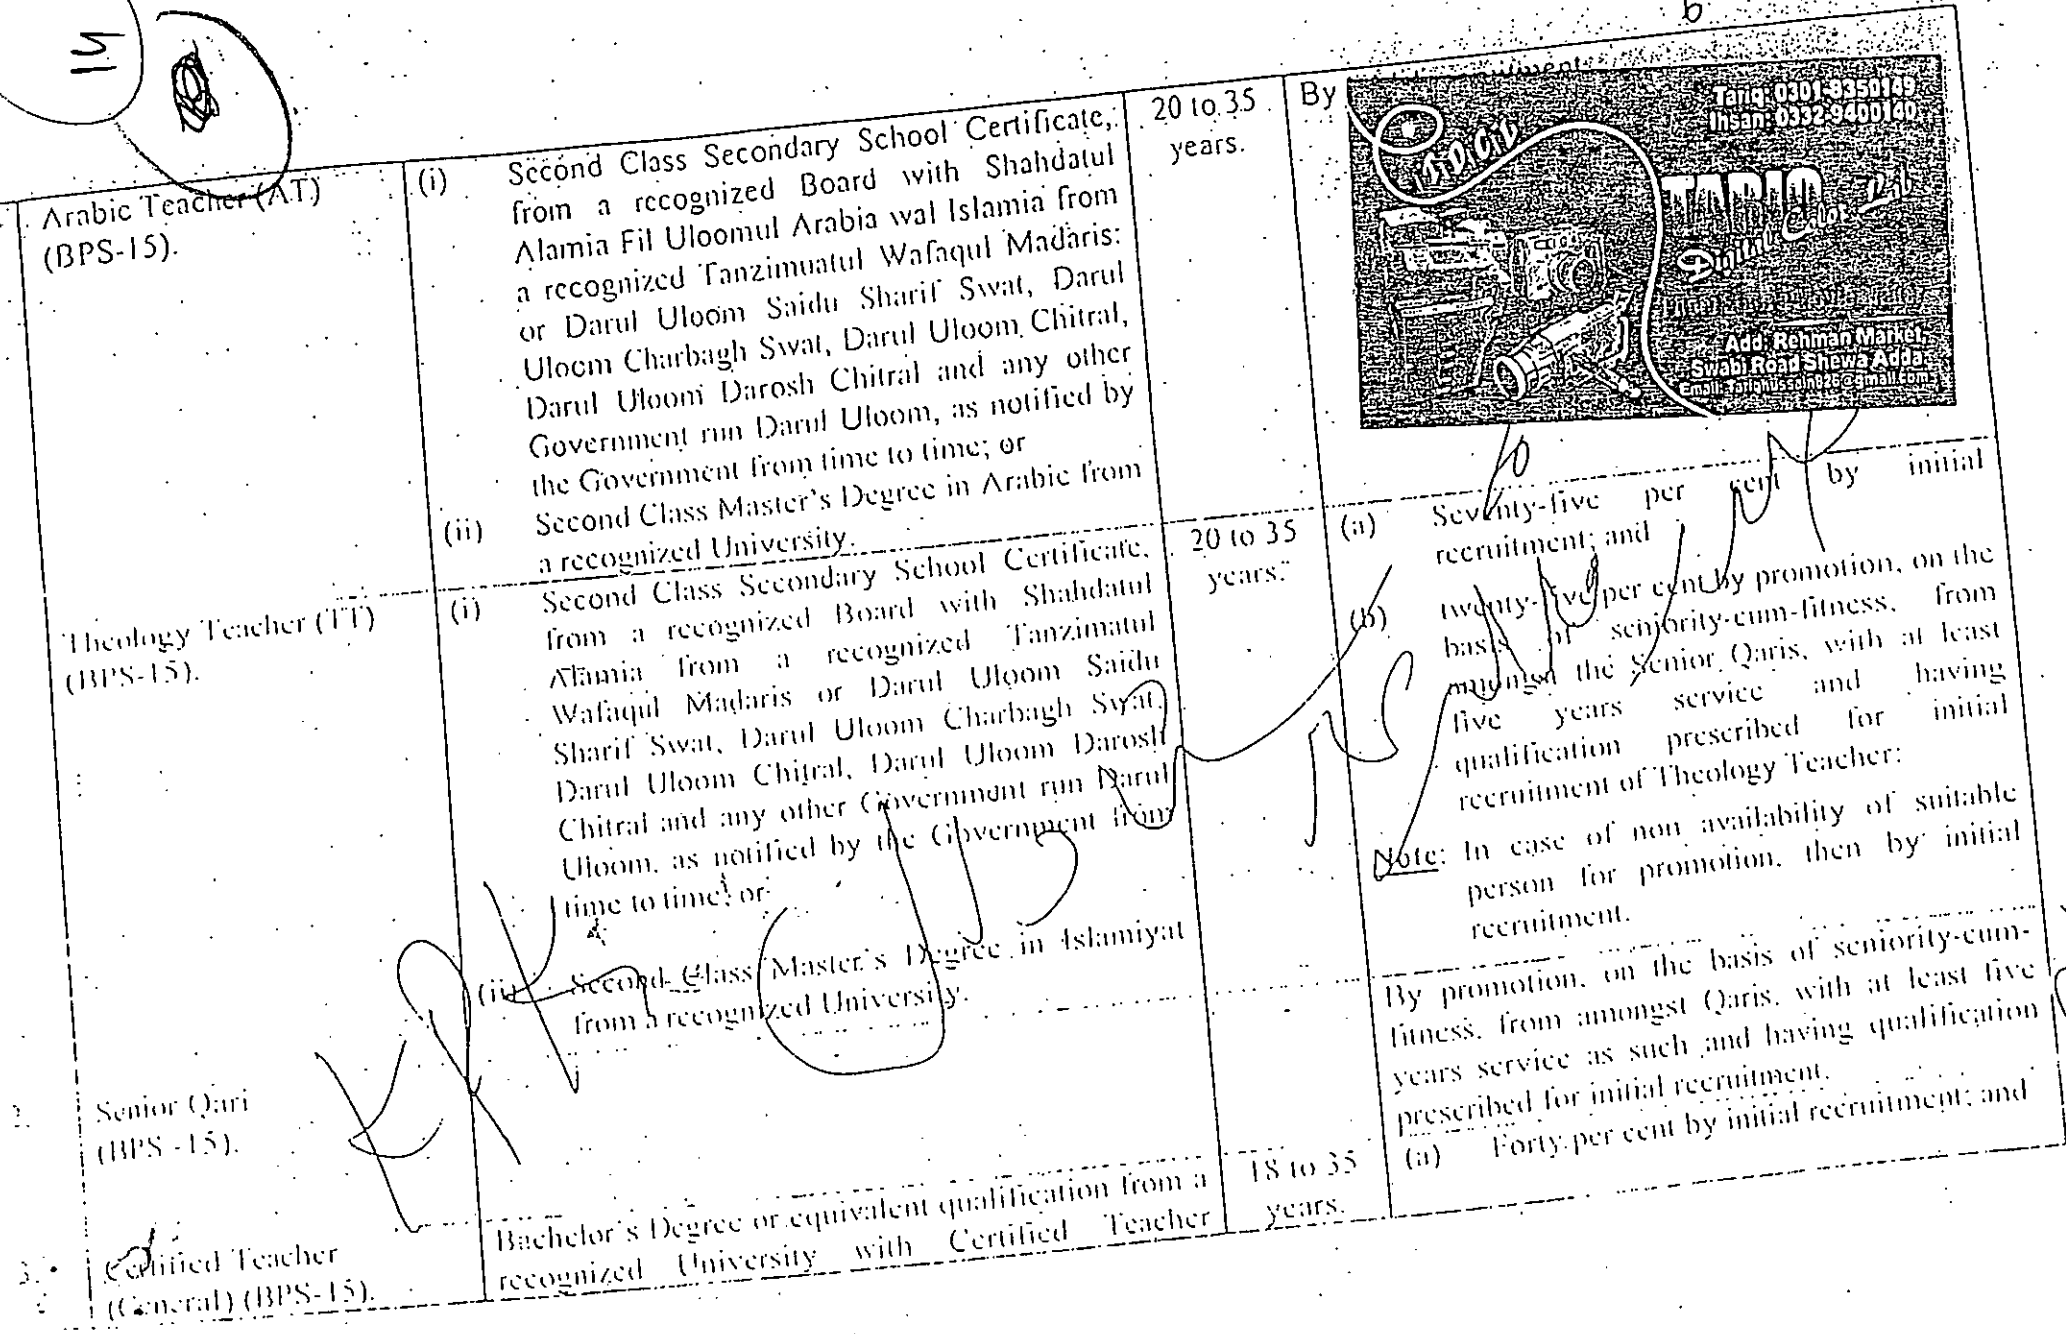 Arabic Teacher (AT)
(BPS-15).
(i) Second Class Secondary School Certificate,
from a recognized Board with Shahdatul
Alamia Fil Uloomul Arabia wal Islamia from
a recognized Tanzimuatul Wafaqul Madaris:
or Darul Uloom Saidu Sharif Swat, Darul
Uloom Charbagh Swat, Darul Uloom Chitral,
Darul Uloom Darosh Chitral and any other
Government run Darul Uloom, as notified by
the Government from time to time; or
(ii) Second Class Master's Degree in Arabic from
a recognized University.
20 to 35
years.
By
Tariq: 0301-8350149
Ihsan: 0332-9400140
TARIQ
Digital Color Lab
Add: Rehman Market,
Swabi Road Shewa Adda.
Theology Teacher (TT)
(BPS-15).
(i) Second Class Secondary School Certificate,
from a recognized Board with Shahdatul
Alamia from a recognized Tanzimatul
Wafaqul Madaris or Darul Uloom Saidu
Sharif Swat, Darul Uloom Charbagh Swat,
Darul Uloom Chitral, Darul Uloom Darosh
Chitral and any other Government run Darul
Uloom, as notified by the Government from
time to time; or
(ii) Second Class Master's Degree in Islamiyat
from a recognized University.
20 to 35
years.
(a) Seventy-five per cent by initial
recruitment; and
(b) twenty-five per cent by promotion, on the
basis of seniority-cum-fitness, from
amongst the Senior Qaris, with at least
five years service and having
qualification prescribed for initial
recruitment of Theology Teacher:
Note: In case of non availability of suitable
person for promotion, then by initial
recruitment.
2. Senior Qari
(BPS -15).
By promotion, on the basis of seniority-cum-
fitness, from amongst Qaris, with at least five
years service as such and having qualification
prescribed for initial recruitment.
3. Certified Teacher
(General) (BPS-15).
Bachelor's Degree or equivalent qualification from a
recognized University with Certified Teacher
18 to 35
years.
(a) Forty per cent by initial recruitment; and